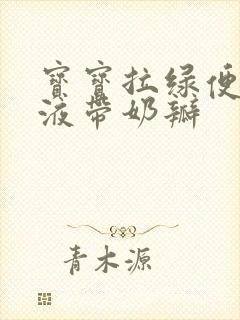 寳寳拉綠便
液帶奶瓣
青木源